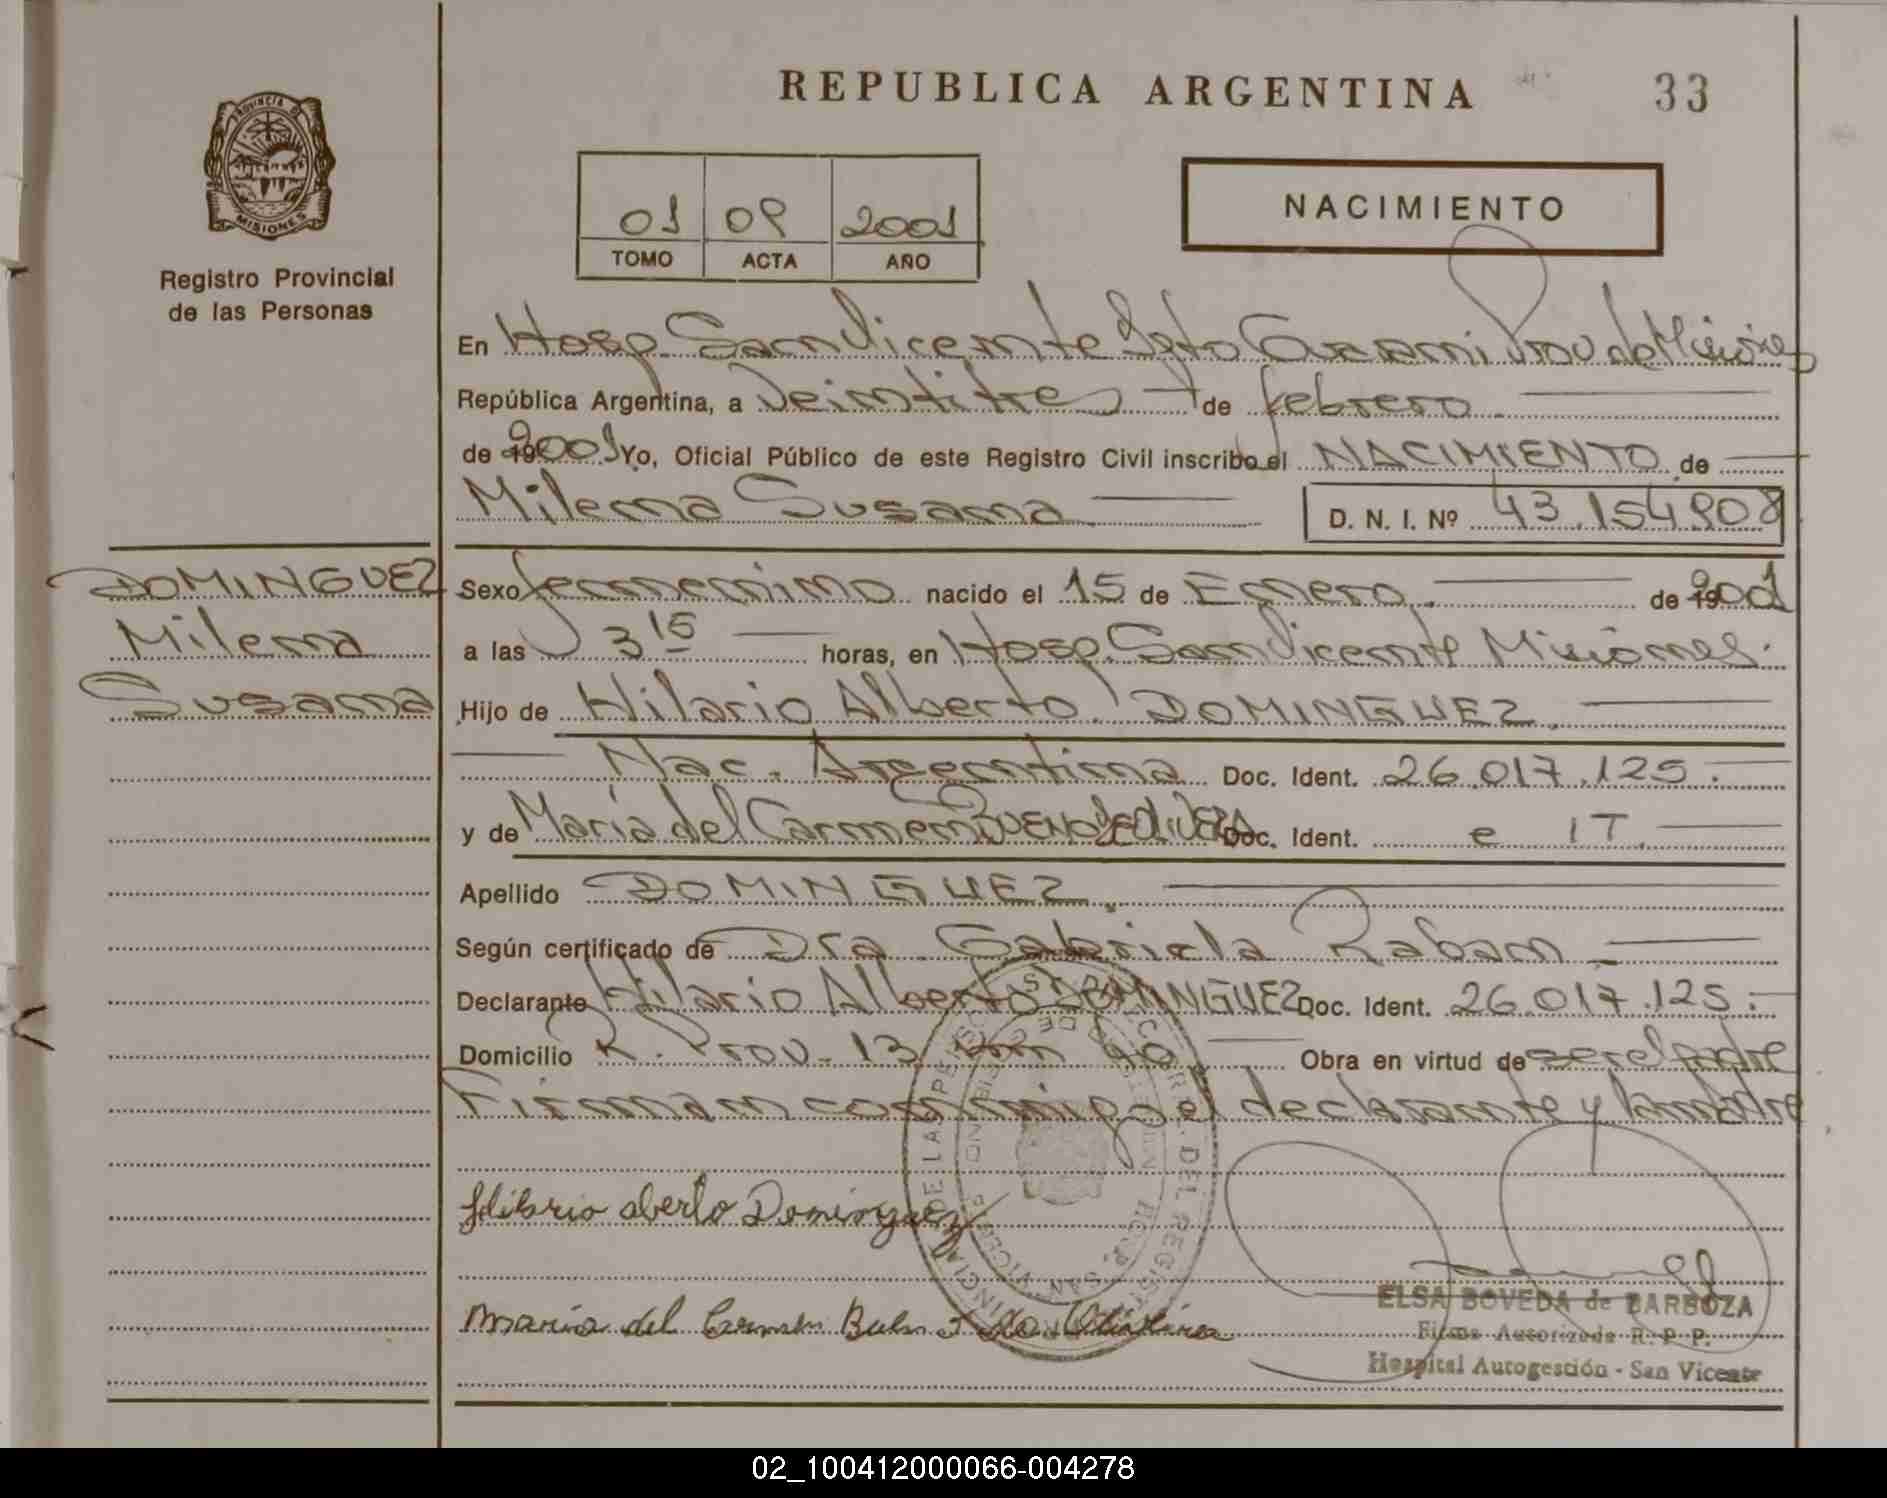 REPUBLICA ARGENTINA
33
PROVINCIA DE
MISIONES
Registro Provincial
de las Personas
01 09 2001
TOMO ACTA AÑO
NACIMIENTO
En Hosp. San Vicente Dpto Guaraní Prov de Misiones
República Argentina, a Veintitres de febrero
de 2001 Yo, Oficial Público de este Registro Civil inscribo el NACIMIENTO de
Milena Susana D. N. I. Nº 43.154.908
DOMINGUEZ
Milena
Susana
Sexo femenino nacido el 15 de Enero de 2001
a las 3 15 horas, en Hosp. San Vicente Misiones.
Hijo de Hilario Alberto DOMINGUEZ.
Nac. Argentina Doc. Ident. 26.017.125.
y de María del Carmen BUENO de OLIVERA Doc. Ident. e IT.
Apellido DOMINGUEZ.
Según certificado de Dra. Gabriela Raban
Declarante Hilario Alberto DOMINGUEZ Doc. Ident. 26.017.125.
Domicilio R. Prov. 13 km Obra en virtud de ser el padre
Firman conmigo el declarante y la madre
Hilario alberto Dominguez
maria del Carmen
ELSA BOVEDA de BARBOZA
Firma Autorizada R. P. P.
Hospital Autogestión - San Vicente
02_100412000066-004278